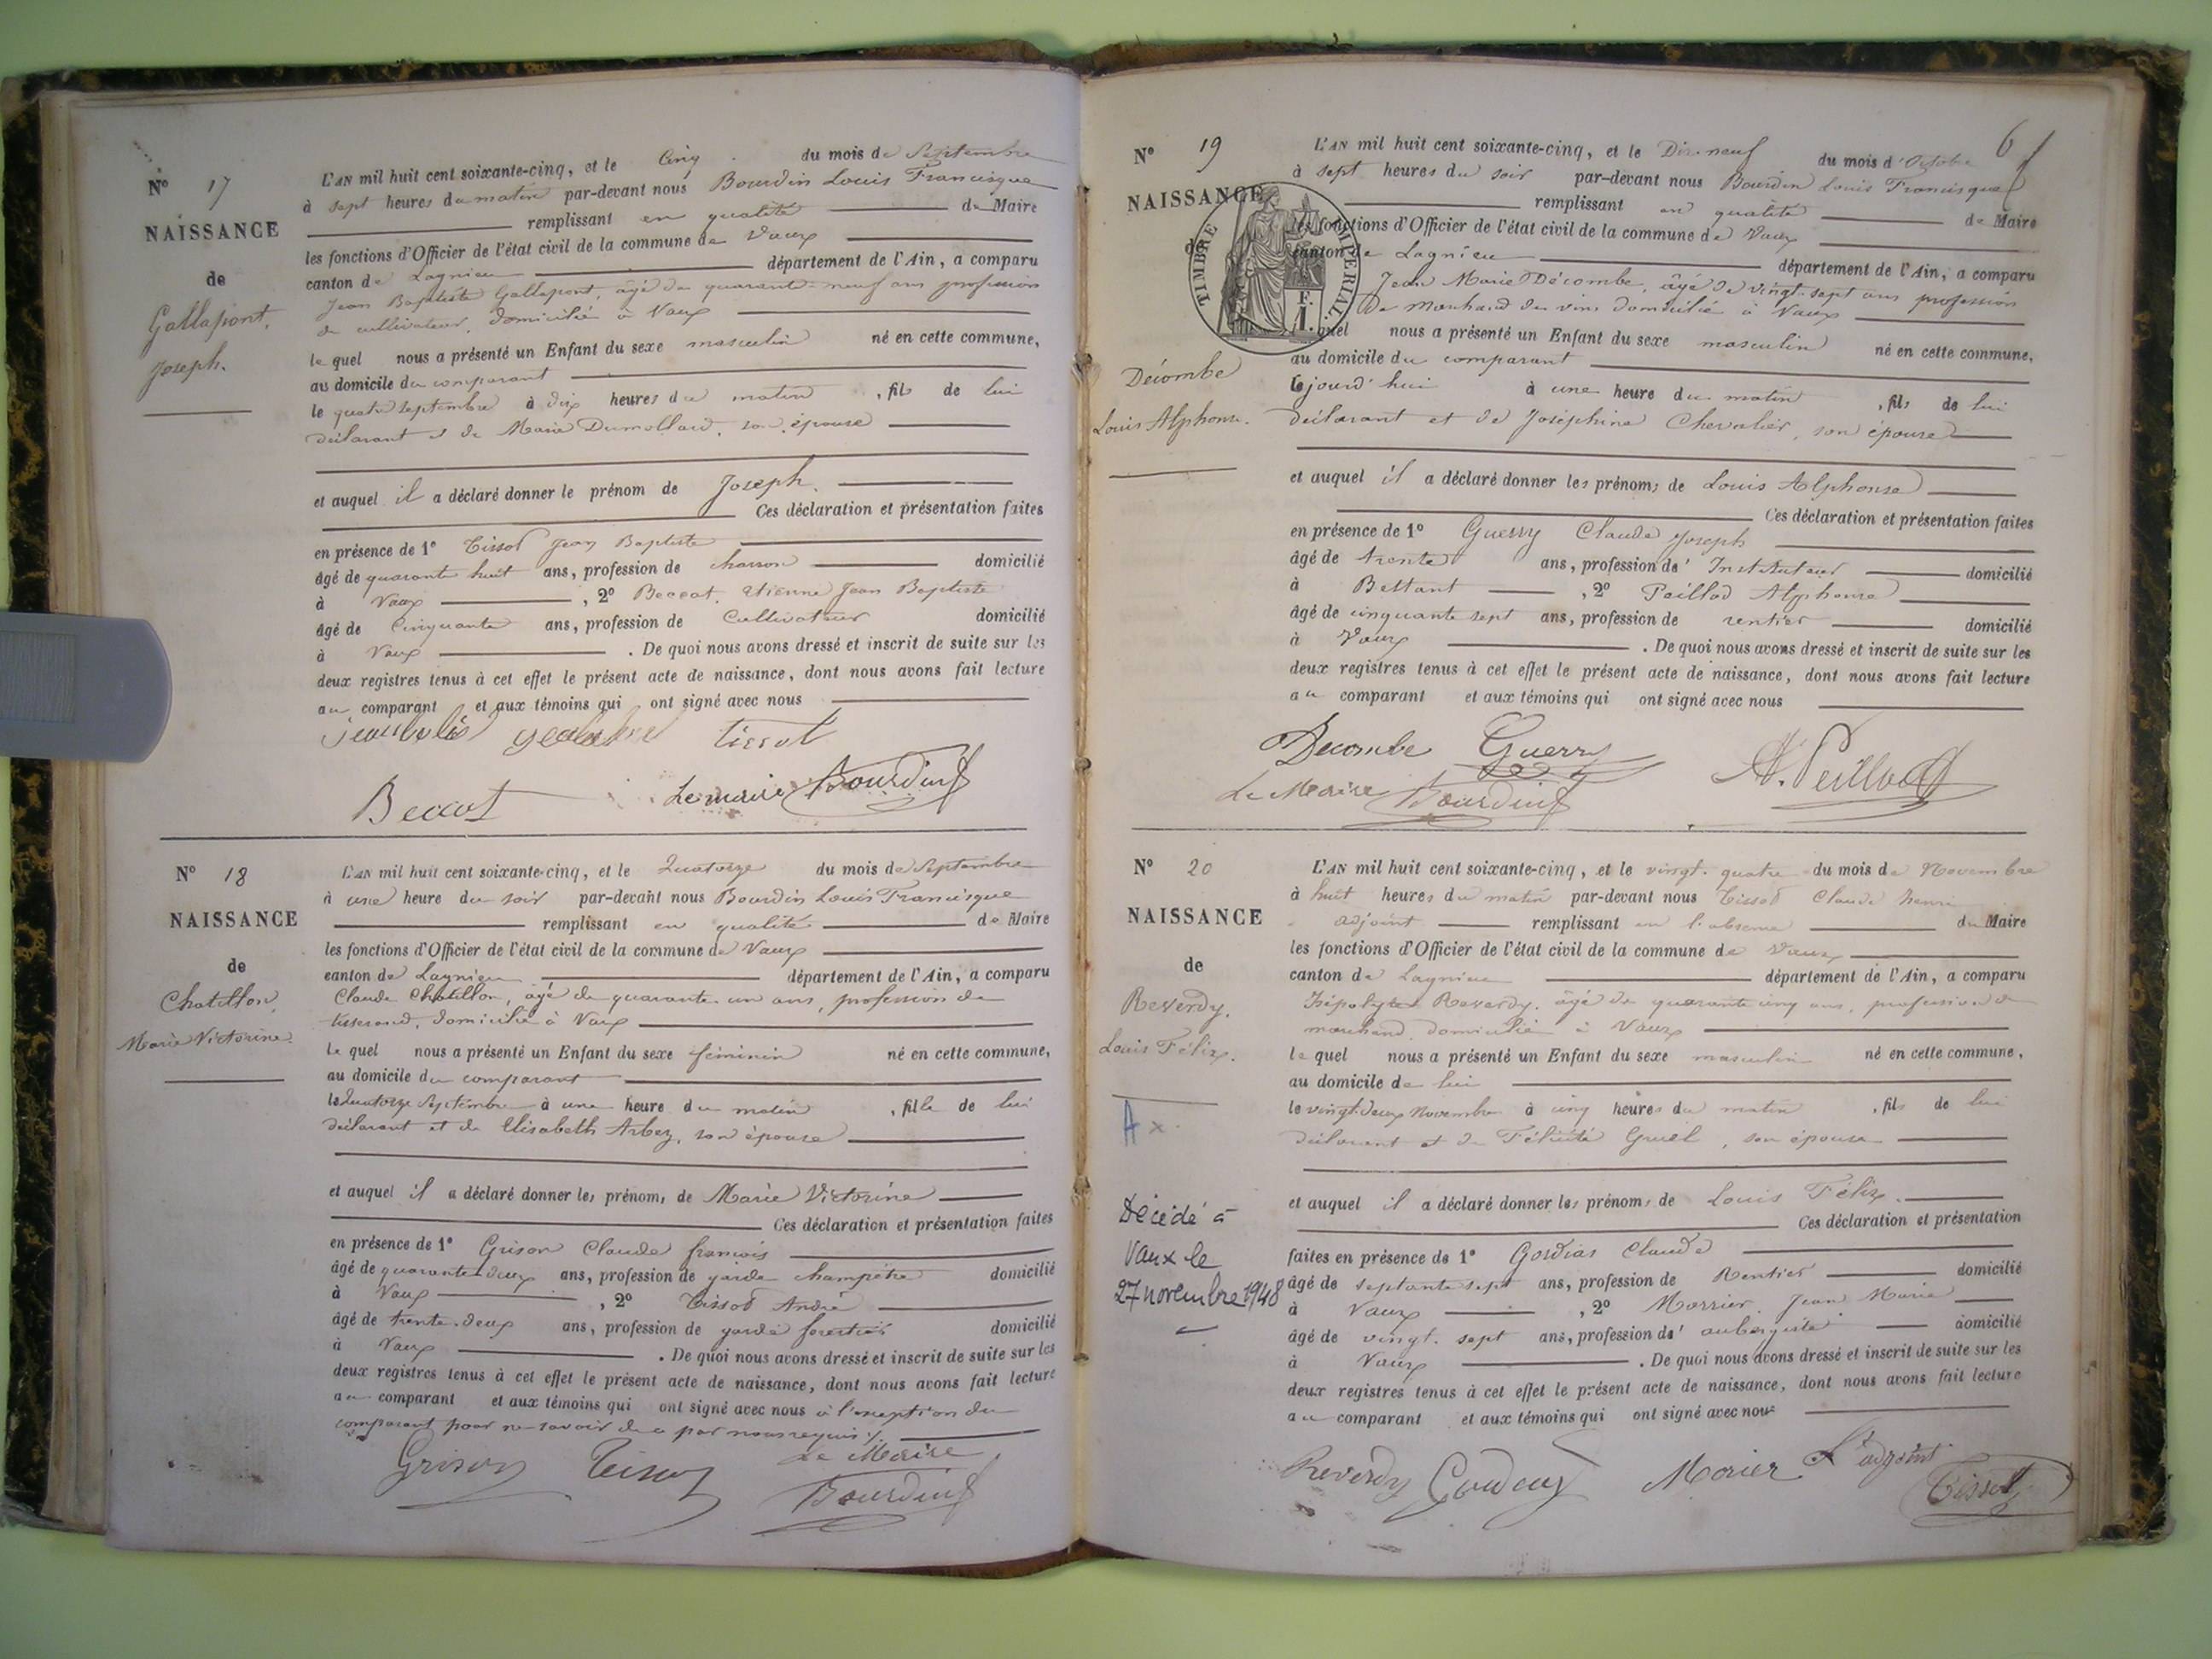 N° 17
NAISSANCE
de
Gallapont,
Joseph.
L'AN mil huit cent soixante-cinq, et le Cinq du mois de Septembre
à sept heures du matin par-devant nous Bourdin Louis Francisque
remplissant en qualité de Maire
les fonctions d'Officier de l'état civil de la commune de Vaux
canton de Lagnieu département de l'Ain, a comparu
Jean Baptiste Gallapont, âgé de quarante-neuf ans profession
de cultivateur, domicilié à Vaux
le quel nous a présenté un Enfant du sexe masculin né en cette commune,
au domicile du comparant
le quatre septembre à dix heures du matin, fils de lui
déclarant et de Marie Dumollard, son épouse
et auquel il a déclaré donner le prénom de Joseph.
Ces déclaration et présentation faites
en présence de 1° Tissot Jean Baptiste
âgé de quarante huit ans, profession de charron domicilié
à Vaux, 2° Beccat, Etienne Jean Baptiste
âgé de Cinquante ans, profession de Cultivateur domicilié
à Vaux. De quoi nous avons dressé et inscrit de suite sur les
deux registres tenus à cet effet le présent acte de naissance, dont nous avons fait lecture
au comparant et aux témoins qui ont signé avec nous
tissot
Beccot Le maire Bourdin
N° 18
NAISSANCE
de
Chatillon,
Marie Victorine.
L'AN mil huit cent soixante-cinq, et le Quatorze du mois de Septembre
à une heure du soir par-devant nous Bourdin Louis Francisque
remplissant en qualité de Maire
les fonctions d'Officier de l'état civil de la commune de Vaux
canton de Lagnieu département de l'Ain, a comparu
Claude Chatillon, âgé de quarante-un ans, profession de
tisserand, domicilié à Vaux
le quel nous a présenté un Enfant du sexe féminin né en cette commune,
au domicile du comparant
le Quatorze Septembre à une heure du matin, fille de lui
déclarant et de Elisabeth Arbez, son épouse
et auquel il a déclaré donner les prénoms de Marie Victorine
Ces déclaration et présentation faites
en présence de 1° Grison Claude françois
âgé de quarante deux ans, profession de garde champêtre domicilié
à Vaux, 2° Tissot André
âgé de trente-deux ans, profession de garde forestier domicilié
à Vaux. De quoi nous avons dressé et inscrit de suite sur les
deux registres tenus à cet effet le présent acte de naissance, dont nous avons fait lecture
au comparant et aux témoins qui ont signé avec nous à l'exception du
comparant pour ne savoir de ce par nous requis ./.
Grison Tissot Le Maire
Bourdin
6
N° 19
NAISSANCE
de
TIMBRE IMPERIAL.
Décombe
Louis Alphonse.
L'AN mil huit cent soixante-cinq, et le Dix-neuf du mois d'Octobre
à sept heures du soir par-devant nous Bourdin Louis Francisque
remplissant en qualité de Maire
les fonctions d'Officier de l'état civil de la commune de Vaux
canton de Lagnieu département de l'Ain, a comparu
Jean Marie Décombe, âgé de vingt-sept ans profession
de marchand de vins domicilié à Vaux
quel nous a présenté un Enfant du sexe masculin né en cette commune,
au domicile du comparant
cejourd'hui à une heure du matin, fils de lui
déclarant et de Joséphine Chevalier, son épouse
et auquel il a déclaré donner les prénoms de Louis Alphonse
Ces déclaration et présentation faites
en présence de 1° Guerry Claude Joseph
âgé de trente ans, profession d'Instituteur domicilié
à Bettant, 2° Peillod Alphonse
âgé de cinquante sept ans, profession de rentier domicilié
à Vaux. De quoi nous avons dressé et inscrit de suite sur les
deux registres tenus à cet effet le présent acte de naissance, dont nous avons fait lecture
au comparant et aux témoins qui ont signé avec nous
Decombe Guerry A. Peillod
Le Maire Bourdin
N° 20
NAISSANCE
de
Reverdy.
Louis Félix.
A x.
Décédé à
Vaux le
27 novembre 1948
L'AN mil huit cent soixante-cinq, et le vingt-quatre du mois de Novembre
à huit heures du matin par-devant nous Tissot Claude henri
adjoint remplissant en l'absence du Maire
les fonctions d'Officier de l'état civil de la commune de Vaux
canton de Lagnieu département de l'Ain, a comparu
Reverdy. âgé de quarante cinq ans, profession de
marchand domicilié à Vaux
le quel nous a présenté un Enfant du sexe masculin né en cette commune,
au domicile de lui
le vingt-deux Novembre à cinq heures du matin, fils de lui
déclarant et de Félicité Gruel, son épouse
et auquel il a déclaré donner les prénoms de Louis Félix.
Ces déclaration et présentation
faites en présence de 1° Claude
âgé de septante sept ans, profession de Rentier domicilié
à Vaux, 2° Morrier. Jean Marie
âgé de vingt-sept ans, profession d'aubergiste domicilié
à Vaux. De quoi nous avons dressé et inscrit de suite sur les
deux registres tenus à cet effet le présent acte de naissance, dont nous avons fait lecture
au comparant et aux témoins qui ont signé avec nous
Reverdy Morier L'adjoint
Tissot